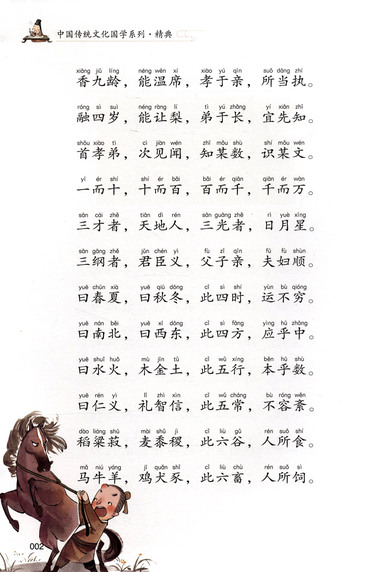 中国传统文化国学系列·精典
xiāng jiǔ líng néng wēn xí xiào yú qīn suǒ dāng zhí
香九龄，能温席，孝于亲，所当执。
róng sì suì néng ràng lí tì yú zhǎng yí xiān zhī
融四岁，能让梨，弟于长，宜先知。
shǒu xiào tì cì jiàn wén zhī mǒu shù shí mǒu wén
首孝弟，次见闻，知某数，识某文。
yī ér shí shí ér bǎi bǎi ér qiān qiān ér wàn
一而十，十而百，百而千，千而万。
sān cái zhě tiān dì rén sān guāng zhě rì yuè xīng
三才者，天地人，三光者，日月星。
sān gāng zhě jūn chén yì fù zǐ qīn fū fù shùn
三纲者，君臣义，父子亲，夫妇顺。
yuē chūn xià yuē qiū dōng cǐ sì shí yùn bù qióng
曰春夏，曰秋冬，此四时，运不穷。
yuē nán běi yuē xī dōng cǐ sì fāng yìng hū zhōng
曰南北，曰西东，此四方，应乎中。
yuē shuǐ huǒ mù jīn tǔ cǐ wǔ xíng běn hū shù
曰水火，木金土，此五行，本乎数。
yuē rén yì lǐ zhì xìn cǐ wǔ cháng bù róng wěn
曰仁义，礼智信，此五常，不容紊。
dào liáng shū mài shǔ jì cǐ liù gǔ rén suǒ shí
稻粱菽，麦黍稷，此六谷，人所食。
mǎ niú yáng jī quǎn shǐ cǐ liù chù rén suǒ sì
马牛羊，鸡犬豕，此六畜，人所饲。
002